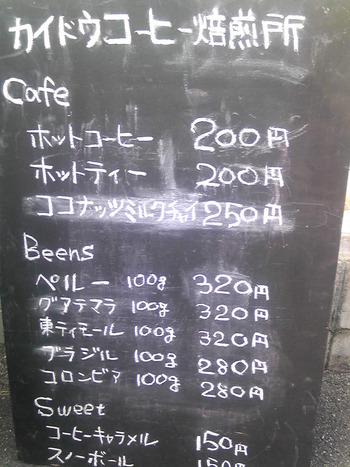 カイドウコーヒー焙煎所
Cafe
ホットコーヒー 200円
ホットティー 200円
ココナッツミルクチャイ 250円
Beens
ペルー 100g 320円
グアテマラ 100g 320円
東ティモール 100g 320円
ブラジル 100g 280円
コロンビア 100g 280円
Sweet
コーヒーキャラメル 150円
スノーボール 150円